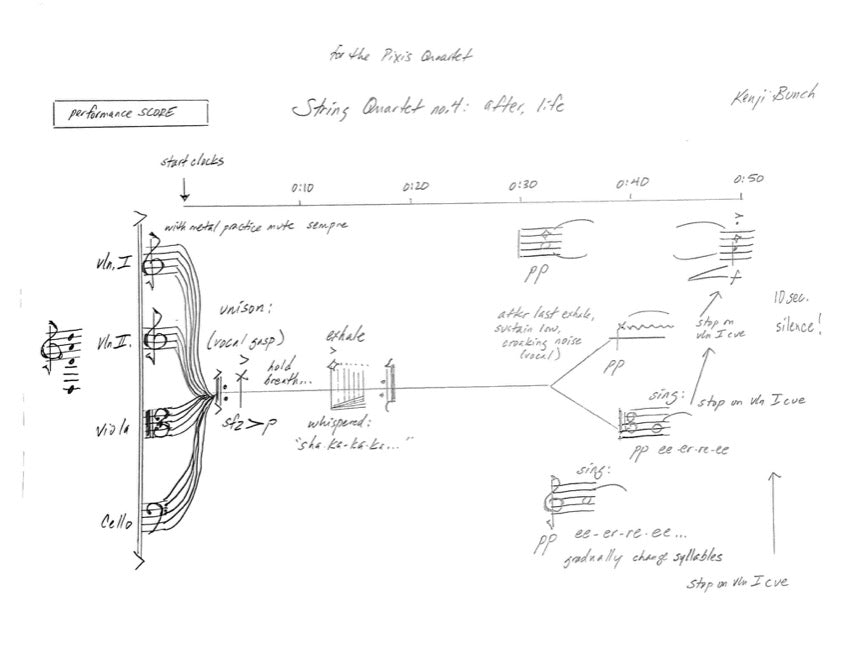 for the Pixis Quartet
performance SCORE
String Quartet no.4: after, life
Kenji Bunch
start clocks
0:10
0:20
0:30
0:40
0:50
with metal practice mute sempre
vln. I
pp
f
unison:
vln II.
(vocal gasp)
hold
breath...
exhale
after last exhale,
sustain low,
croaking noise
(vocal)
pp
stop on
vln I cue
10 sec.
silence!
viola
sfz>p
whispered:
"sha-ka-ka-ka..."
sing:
stop on vln I cue
pp ee-er-re-ee
cello
sing:
pp ee-er-re-ee...
gradually change syllables
stop on vln I cue